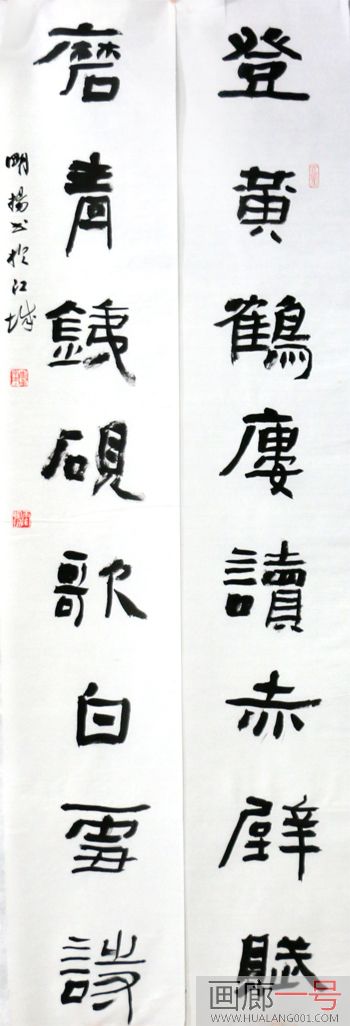 登黃鶴廔讀赤壁賦
磨青銕硯歌白雪詩
明揚书於江城
画廊一号
WWW.HUALANG001.COM